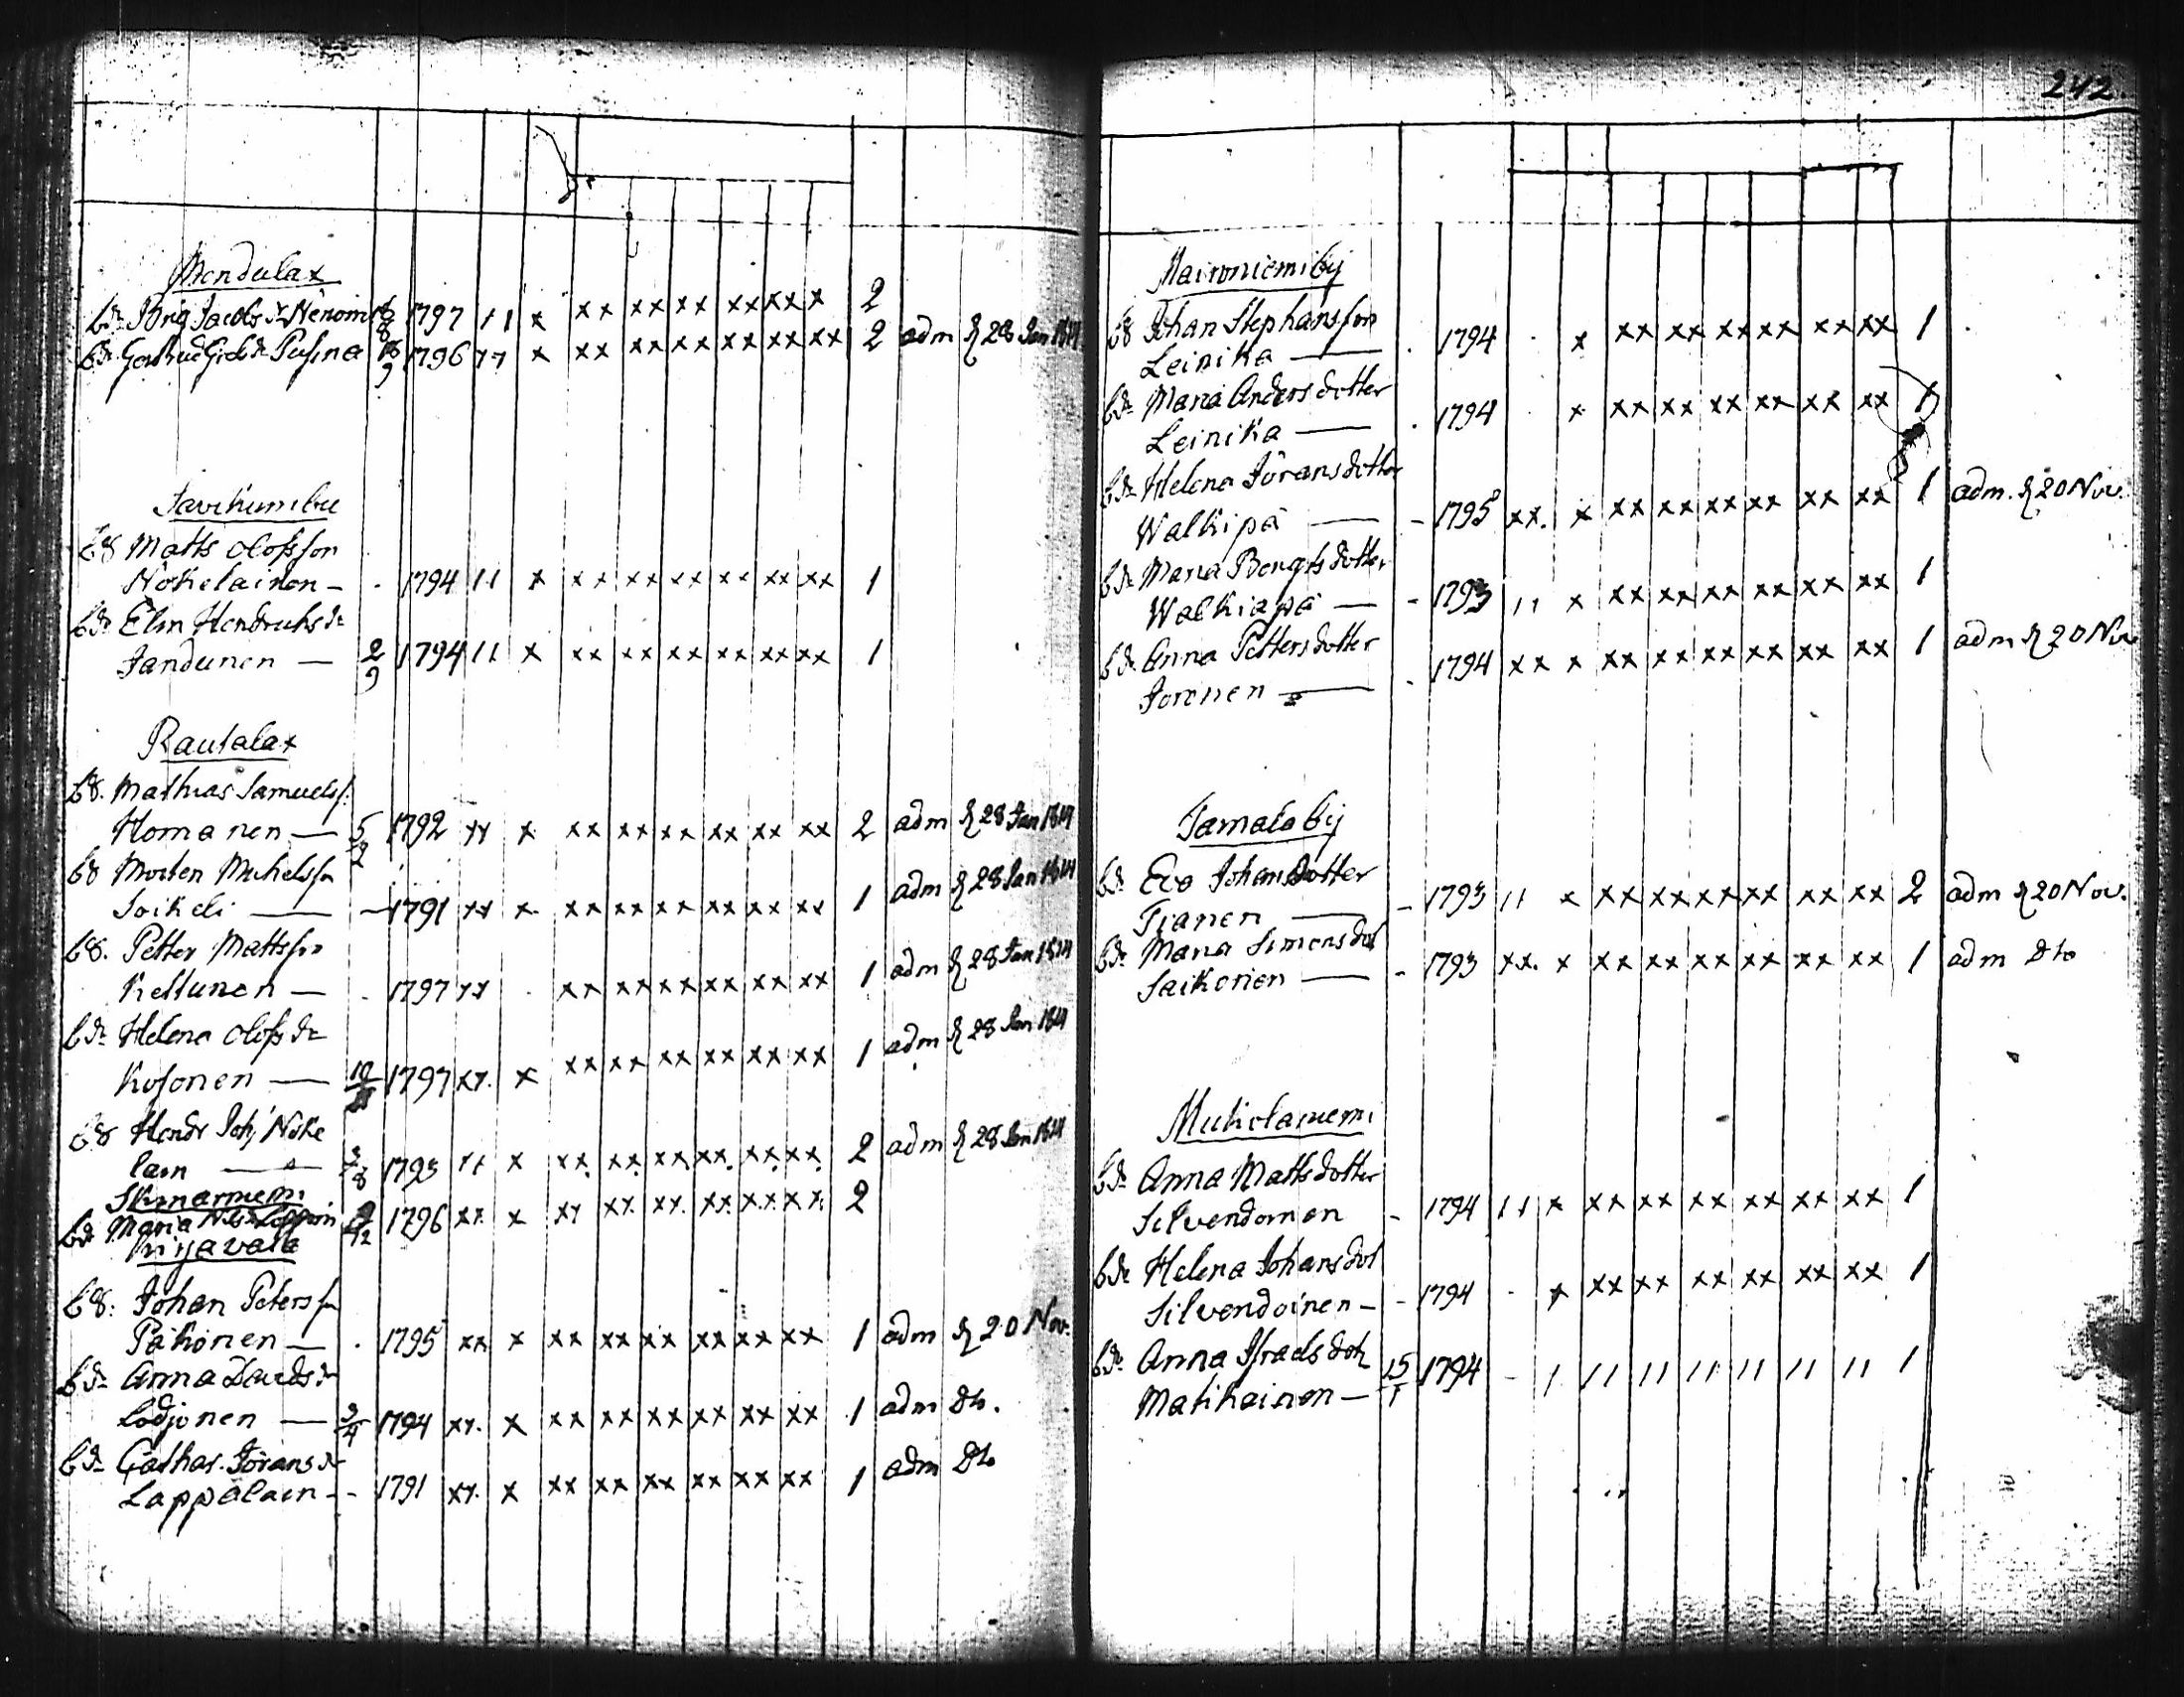 242
Mendulax
bdr Brig. Jacobs dr Nenoin 1797 11 x xx xx xx xx xx x 2
bdr Gertrud Gabr dr Pusina 9 1796 11 x xx xx xx xx xx xx 2 adm d 28 Jan 1814
Savikumibu
bs Matts Olofsson
Nökelainen - 1794 11 x xx xx xx xx xx xx 1
bdr Elin Hendrichs dr
Jandunen — 2/9 1794 11 x xx xx xx xx xx xx 1
Rautalax
bs. Mathias Samuelss.
Homanen — 5/2 1792 xx x xx xx xx xx xx xx 2 adm d 28 Jan 1814
bs Morten Michelsson
Soikeli — 1791 xx x xx xx xx xx xx xx 1 adm d 28 Jan 1814
bs. Petter Mattsson
Kettunen — 1797 xx xx xx xx xx xx xx 1 adm d 28 Jan 1814
bdr Helena Olofs dr
Kosonen — 1797 xx. x xx xx xx xx xx xx 1 adm d 28 Jan 1814
bs Hendr Joh. Nöke
lain — 3/8 1793 11 x xx. xx. xx. xx. xx. xx. 2 adm d 28 Jan 1814
Skinarniemi
bdr Maria Nils dr 12 1796 xx. x xx xx. xx. xx. xx. xx. 2
Kijavala
bs: Johan Petersson
Påhönen — 1795 xx x xx xx xx xx xx xx 1 adm d 20 Nov.
bdr Anna Davids dr
Lodjonen — 3/4 1794 xx. x xx xx xx xx xx xx 1 adm Dto.
bdr Cathar. Jörans dr
Lappalain - - 1791 xx. x xx xx xx xx xx xx 1 adm Dto
Maironiemi by
bs Johan Stephansson
Leinika — 1794 x xx xx xx xx xx xx 1
bdr Maria Anders dotter
Leinika — 1794 x xx xx xx xx xx xx 1
bdr Helena Jörans dotter
Walkipä — - 1795 xx. x xx xx xx xx xx xx 1 adm. d 20 Nov.
bdr Maria Bengts dotter
Walkiapä — - 1793 11 x xx xx xx xx xx xx 1
bdr Anna Petters dotter
Joronen — 1794 xx x xx xx xx xx xx xx 1 adm d 20 Nov
Jamala by
bdr Eva Johans dotter
Tianen — - 1793 11 x xx xx xx xx xx xx 2 adm d 20 Nov.
bdr Maria Simons dot
Saikonen — - 1793 xx. x xx xx xx xx xx xx 1 adm Dto
Mukolaniemi
bdr Anna Matts dotter
Silvendoinen - 1794 11 x xx xx xx xx xx xx 1
bdr Helena Johans dot
Silvendoinen - - 1794 - x xx xx xx xx xx xx 1
bdr Anna Israels dotr
Matikainen — 15/1 1794 - 1 11 11 11 11 11 11 1